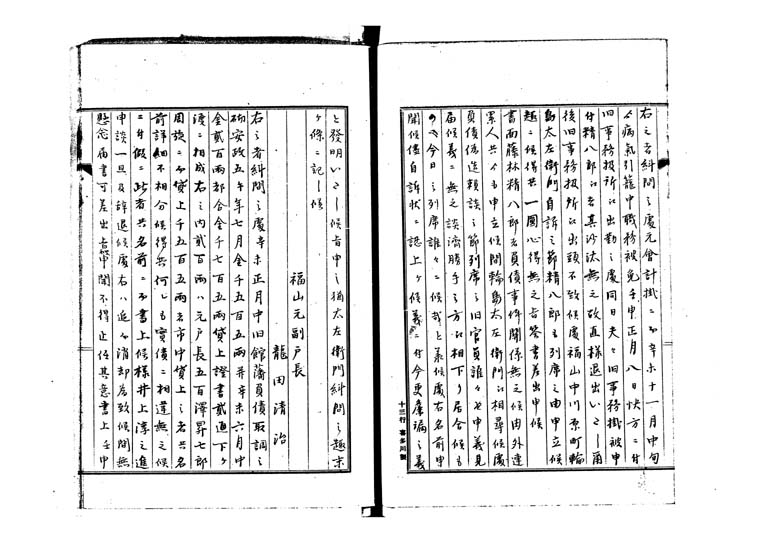 右之者糾問之處元會計掛ニ而辛未十一月中旬
ゟ病氣引籠中職務被免壬申正月八日快方ニ付
旧事務扱所江出勤之處同日夫々旧事務掛被申
付精八郎江者其沙汰無之故直様退出いたし爾
後旧事務扱所江出頭不致候處福山中川原町輪
島太左衛門自訴之節精八郎も列席之由申立候
趣ニ候得共一圓心得無之旨答書差出申候
書面藤林精八郎者負債事件関係無之候由外連
累人共ゟも申立候間輪島太左衛門江相尋候處
負債偽造頼談之節列席之旧官員誰々与申義見
届候義ニ無之談済勝手之方江相下り居合候もの
今日之列席誰々ニ候哉と承候處右名前申
聞候儘自訴状ニ認上ケ候義ニ付今更麁漏之義
十三行 喜多川製
と發明いたし候旨申之猶太左衛門糾問之趣末
ケ條ニ記し候
福山元副戸長
龍田清治
右之者糾問之處辛未正月中旧館藩負債取調之
砌安政五午年七月金千五百五両并辛未六月中
金貳百両都合金千七百五両貸上證書貳通下ケ
渡ニ相成右之内貳百両ハ元戸長五百澤昇七郎
周旋ニ而貸上千五百五両者市中貸上之者共名
前詳細不相分候得共何レも實債ニ相違無之候
ニ付假ニ此者共名前ニ而書上候様井上淳之進
申談一旦及辞退候處右ハ追而消却為致候間無
懸念届書可差出旨申聞不得止任其意書上壬申